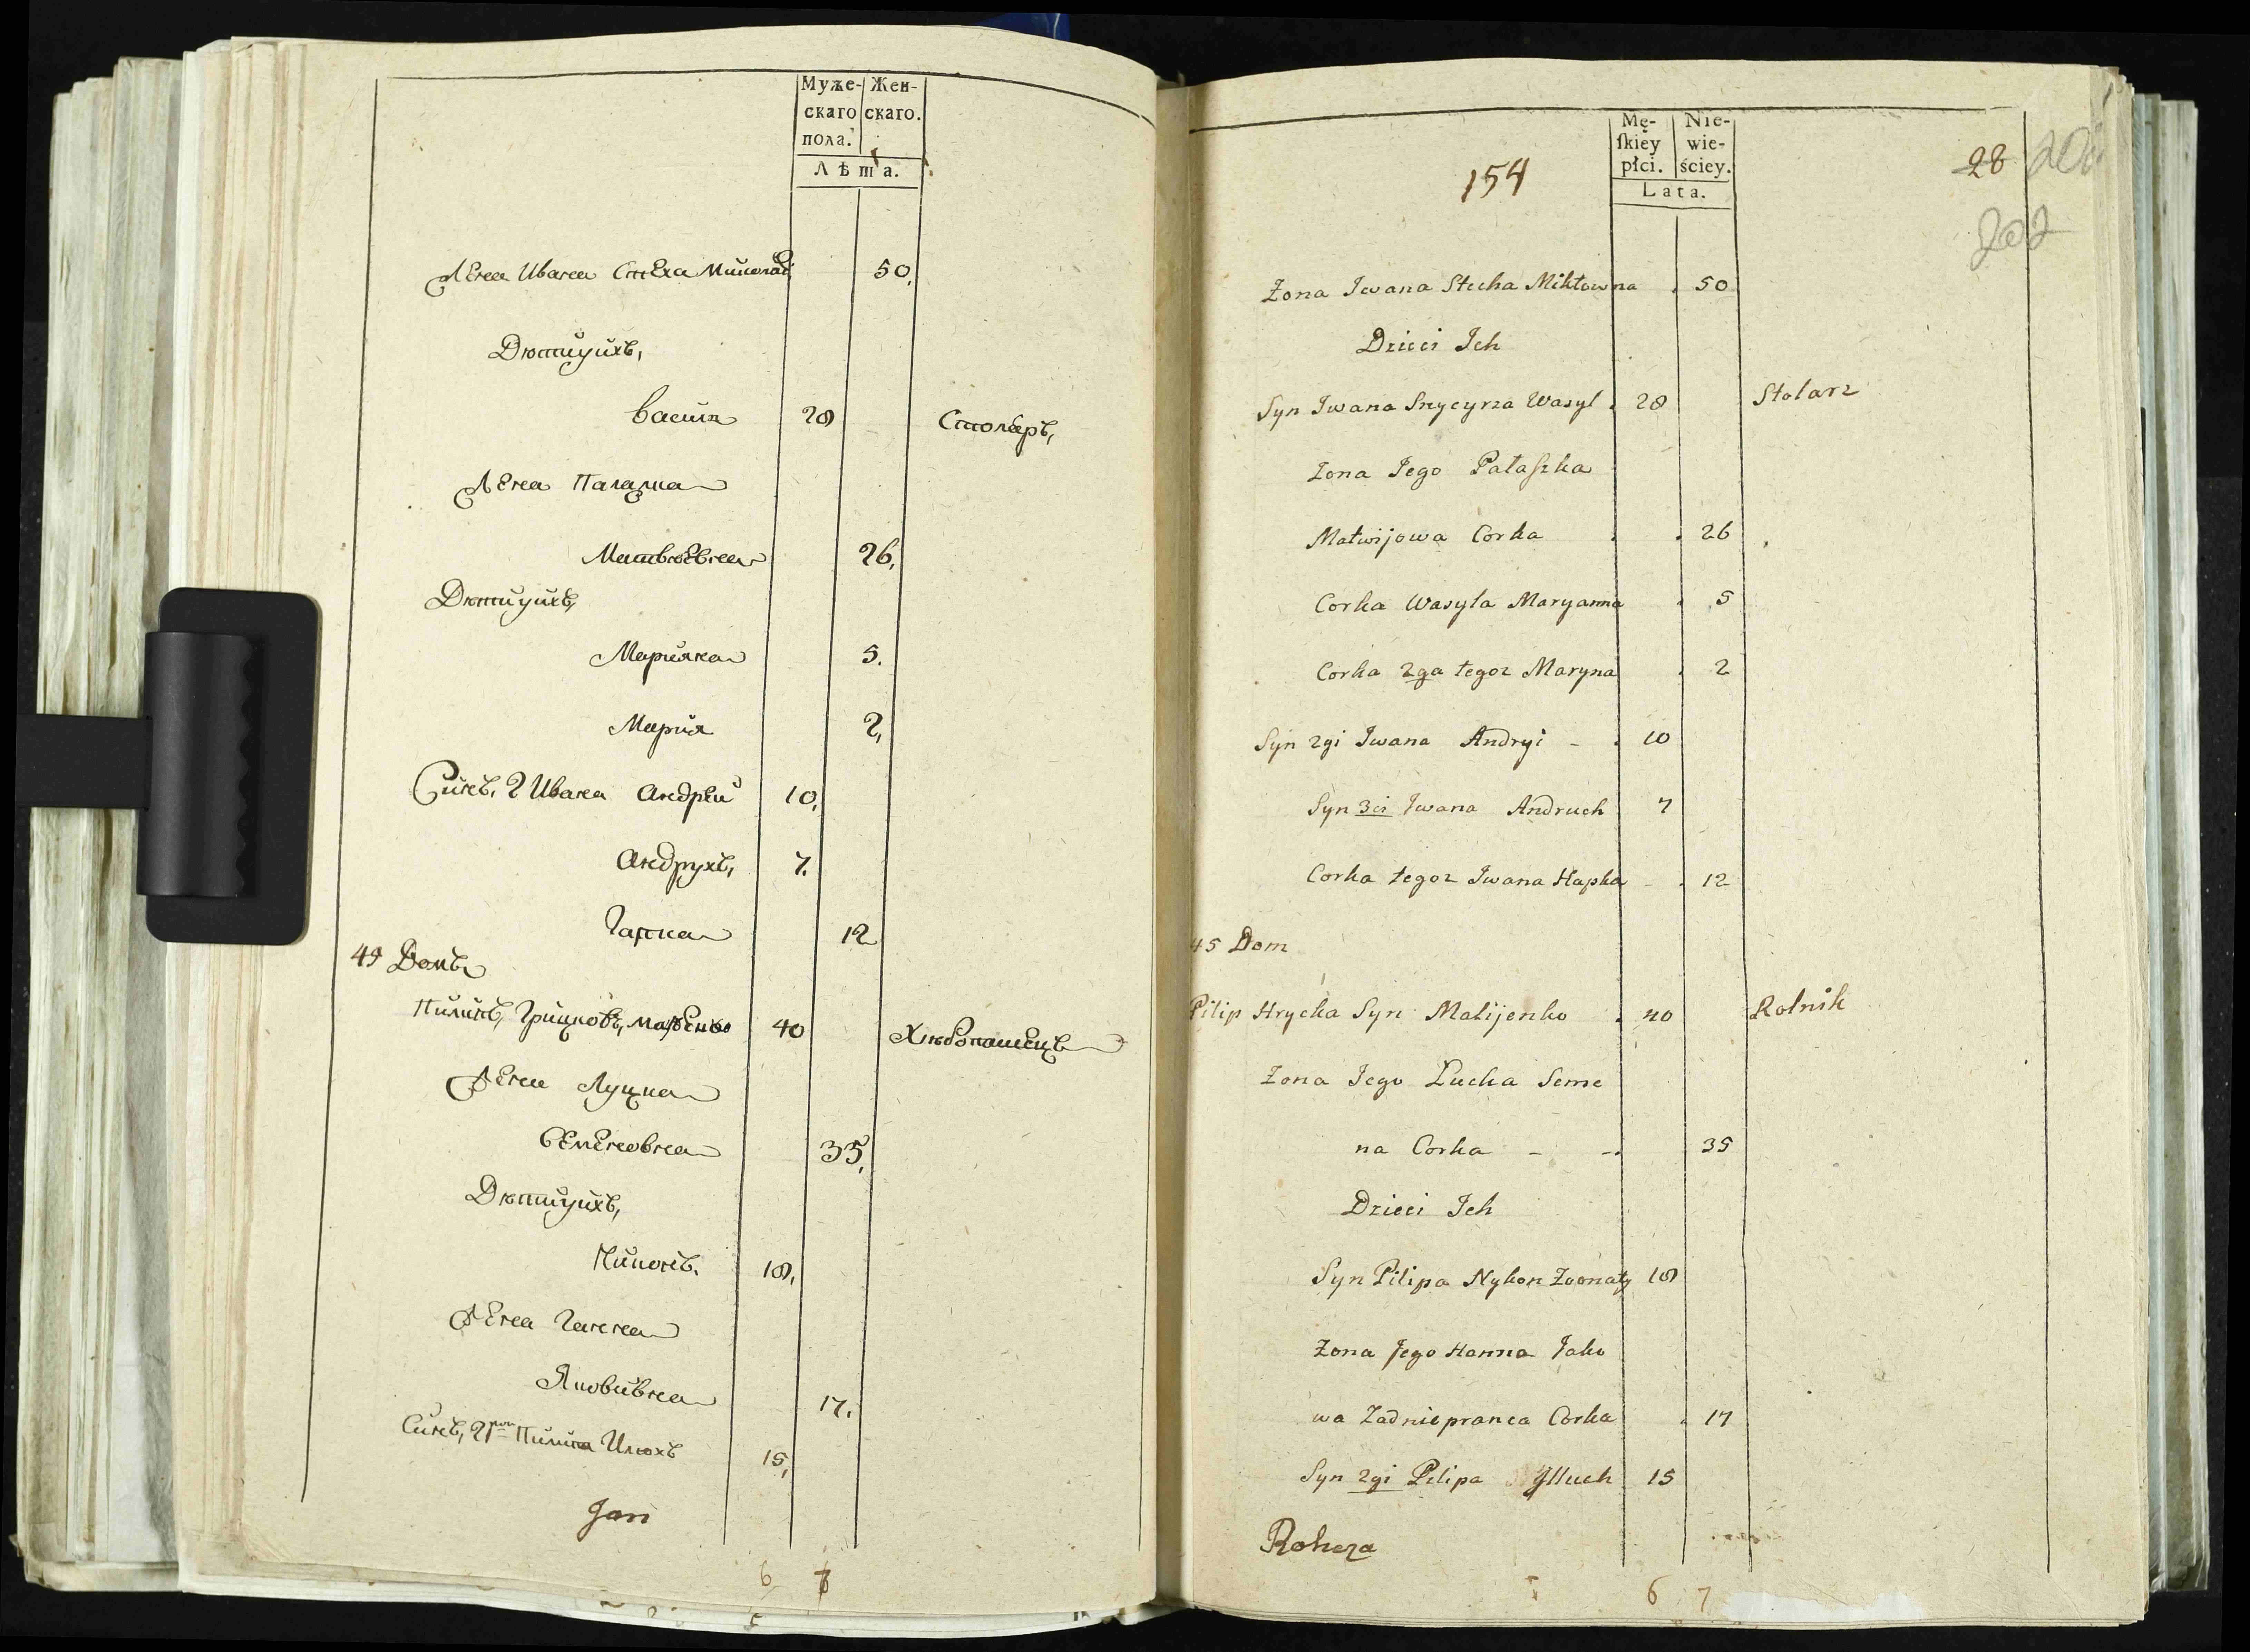 Муже- Жен-
скаго скаго.
пола.
Лѣта.
Жена Ивана Стеха 50.
Дѣти ихъ,
Васил 28 Столяръ,
Жена Палажка
Матвѣевна 26,
Дѣти ихъ,
Марияна 5.
Мария 2,
Синъ, 2 Ивана Андрей 10,
Андрухъ, 7.
Гапка 12
45 Домъ
Пилипъ, Грицковъ, 40 Хлебопашецъ
Жена Луцка
Семеновна 35,
Дѣти ихъ,
Никонъ. 18,
Жена Ганна
Яковивна 17.
Синъ, 2рой Пилипа Илюхъ 15,
Jan
6 7
Mę- Nie-
ſkiey wie-
płci. ściey.
Lata.
154
28
202
Zona Iwana Stecha Mikłowna 50
Dzieci Ich
Syn Iwana Snycyrza Wasyl 28 Stolarz
Zona Iego Pałaſzka
Matwijowa Corka 26
Corka Wasyla Maryanna 5
Corka 2ga tegoz Maryna 2
Syn 2gi Iwana Andryi - 10
Syn 3ci Iwana Andruch 7
Corka tegoz Iwana Hapka - 12
45 Dom
Pilip Hrycka Syn Matijenko 40 Rolnik
Zona Iego Lucka Seme
na Corka - - 35
Dzieci Ich
Syn Pilipa Nykon Zoonaty 18
Zona Jego Hanna Jako
wa Zadniepranca Corka 17
Syn 2gi Pilipa Jlluch 15
Roheza
6 7